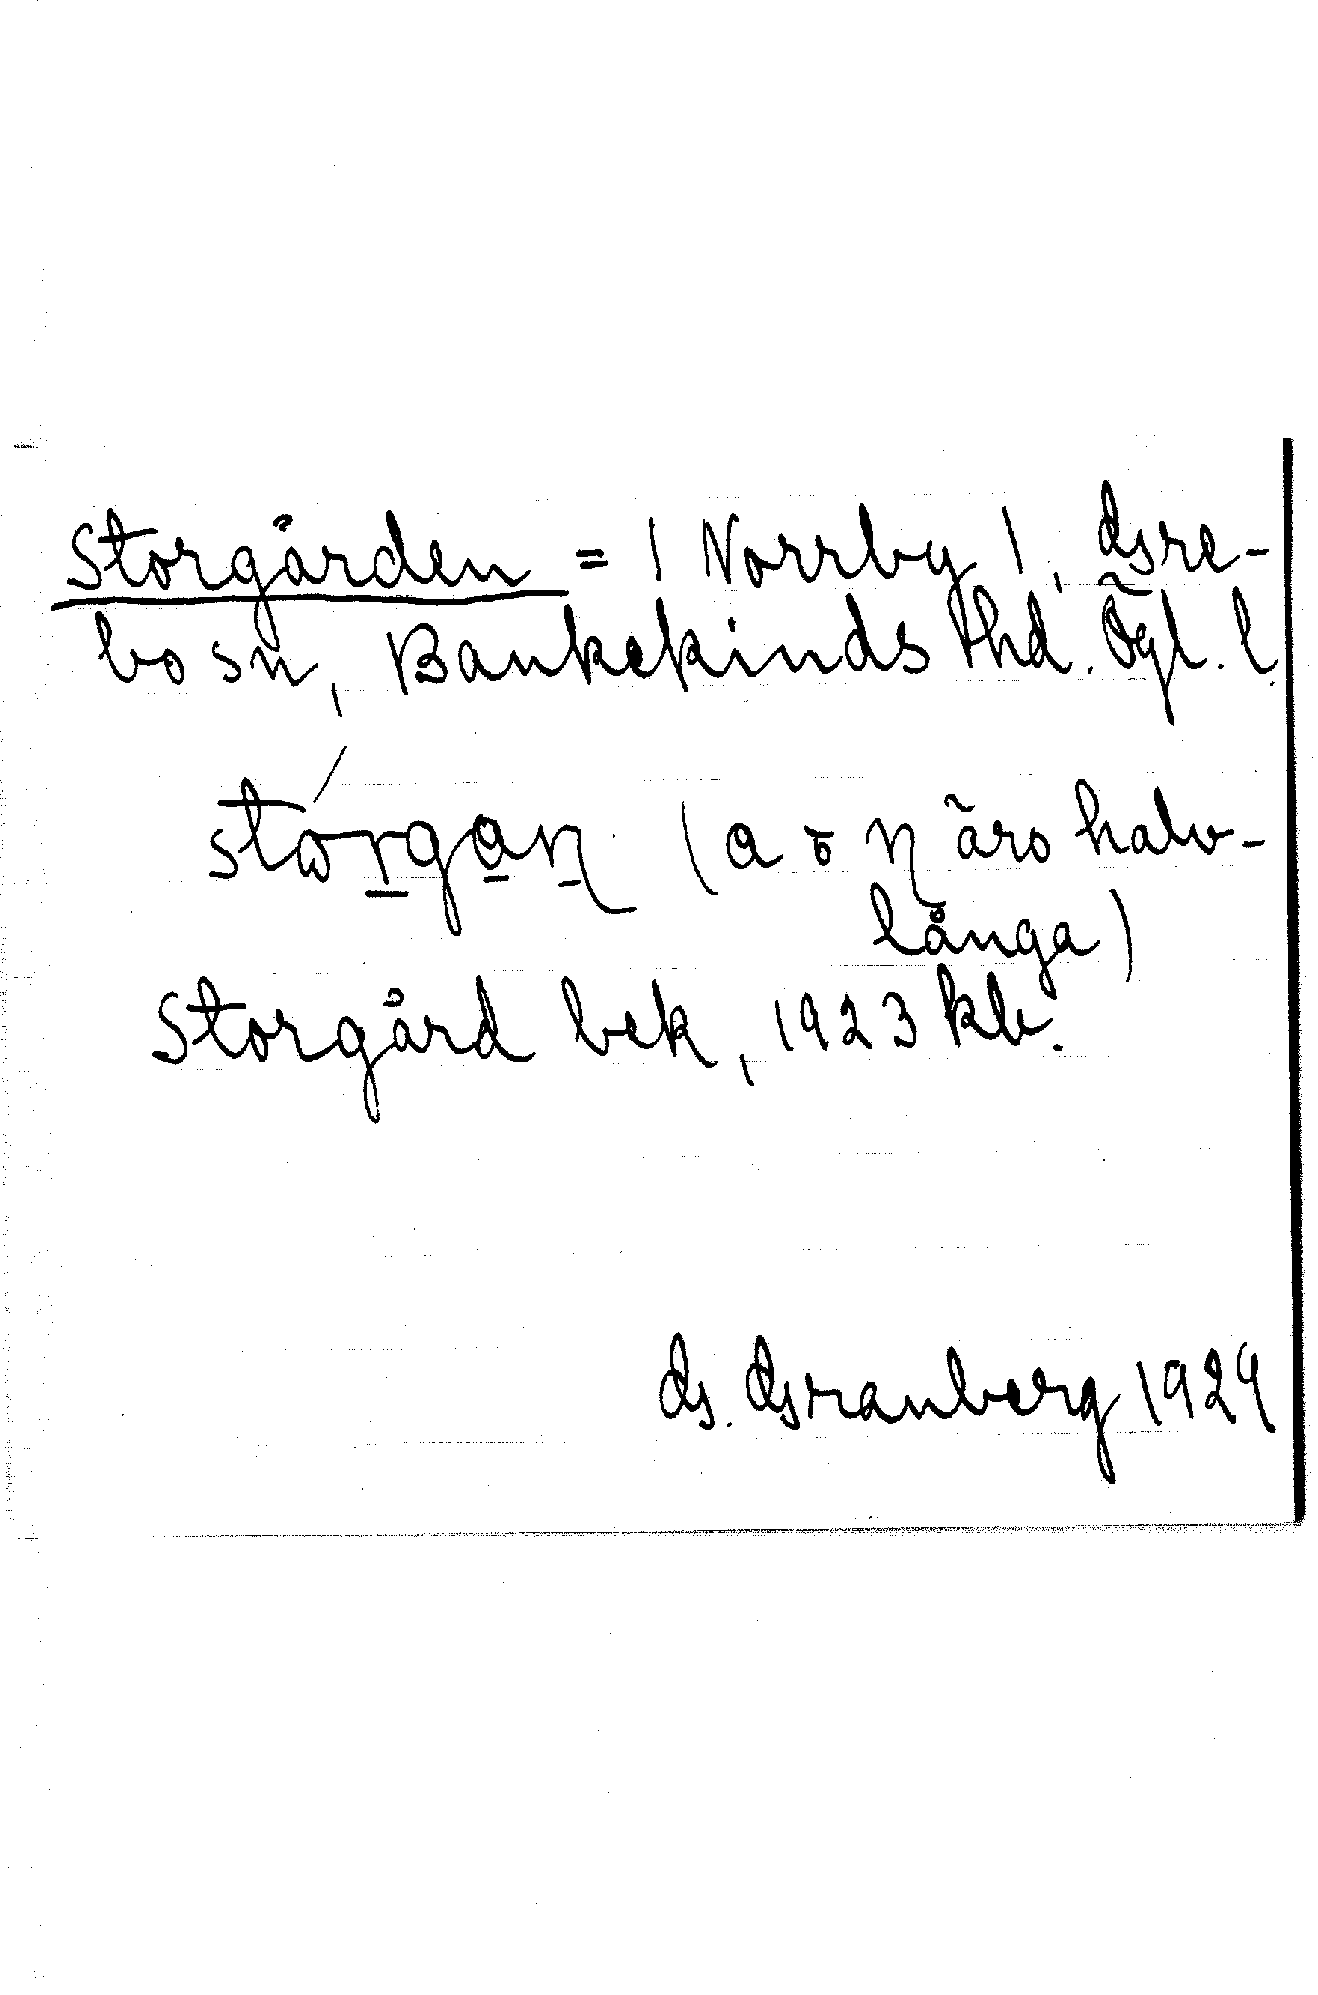 Storgården = (Norrby), Gre-
bo sn, Bankekinds thd. Ögl. l
stώrgaɳ (a o ɳ äro halv-
långa)
Storgård bek, 1923 kb.
G. Granberg 1929